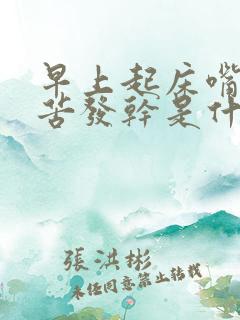 早上起床嘴
苦發幹是什
張洪彬
未经同意禁止转载